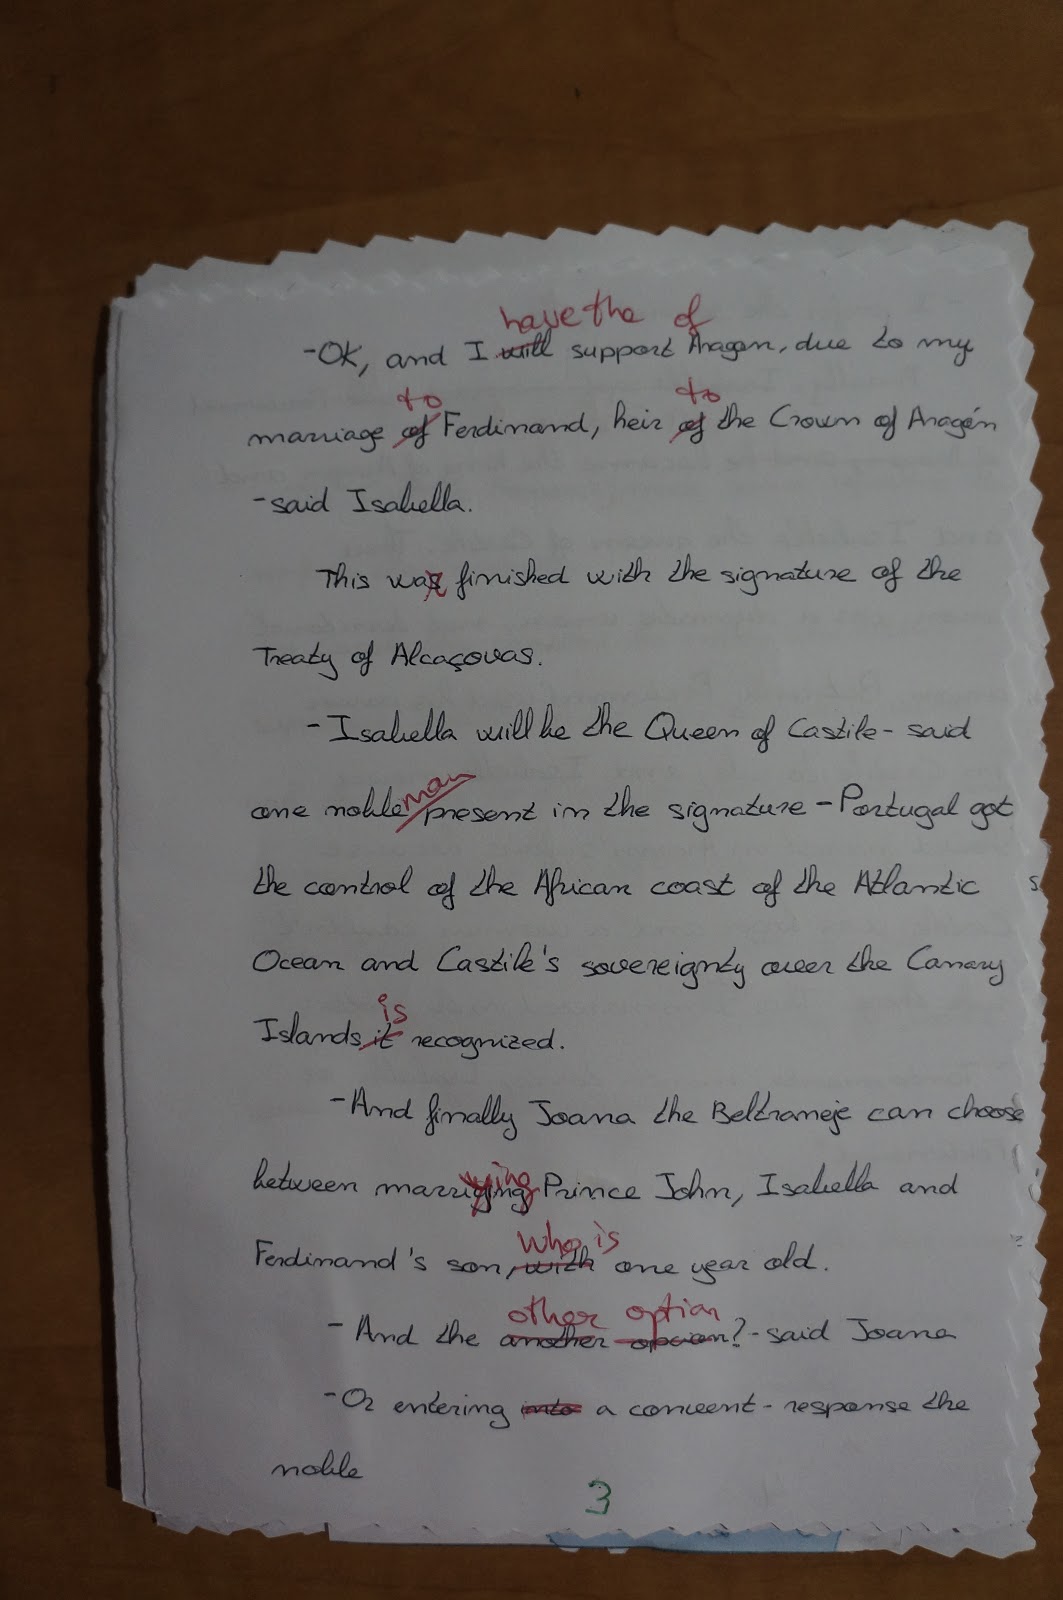 have the of
-OK, and I will support Aragon, due to my
to to
marriage of Ferdinand, heir of the Crown of Aragón
-said Isabella.
This was finished with the signature of the
Treaty of Alcaçovas.
-Isabella will be the Queen of Castile- said
man
one noble present in the signature - Portugal got
the control of the African coast of the Atlantic
Ocean and Castile's sovereignty over the Canary
is
Islands, it recognized.
-And finally Joana the Beltraneje can choose
ying
between marriging Prince John, Isabella and
who is
Ferdinand's son, with one year old.
other option
- And the another opcion? - said Joana
-Or entering into a convent - response the
noble
3